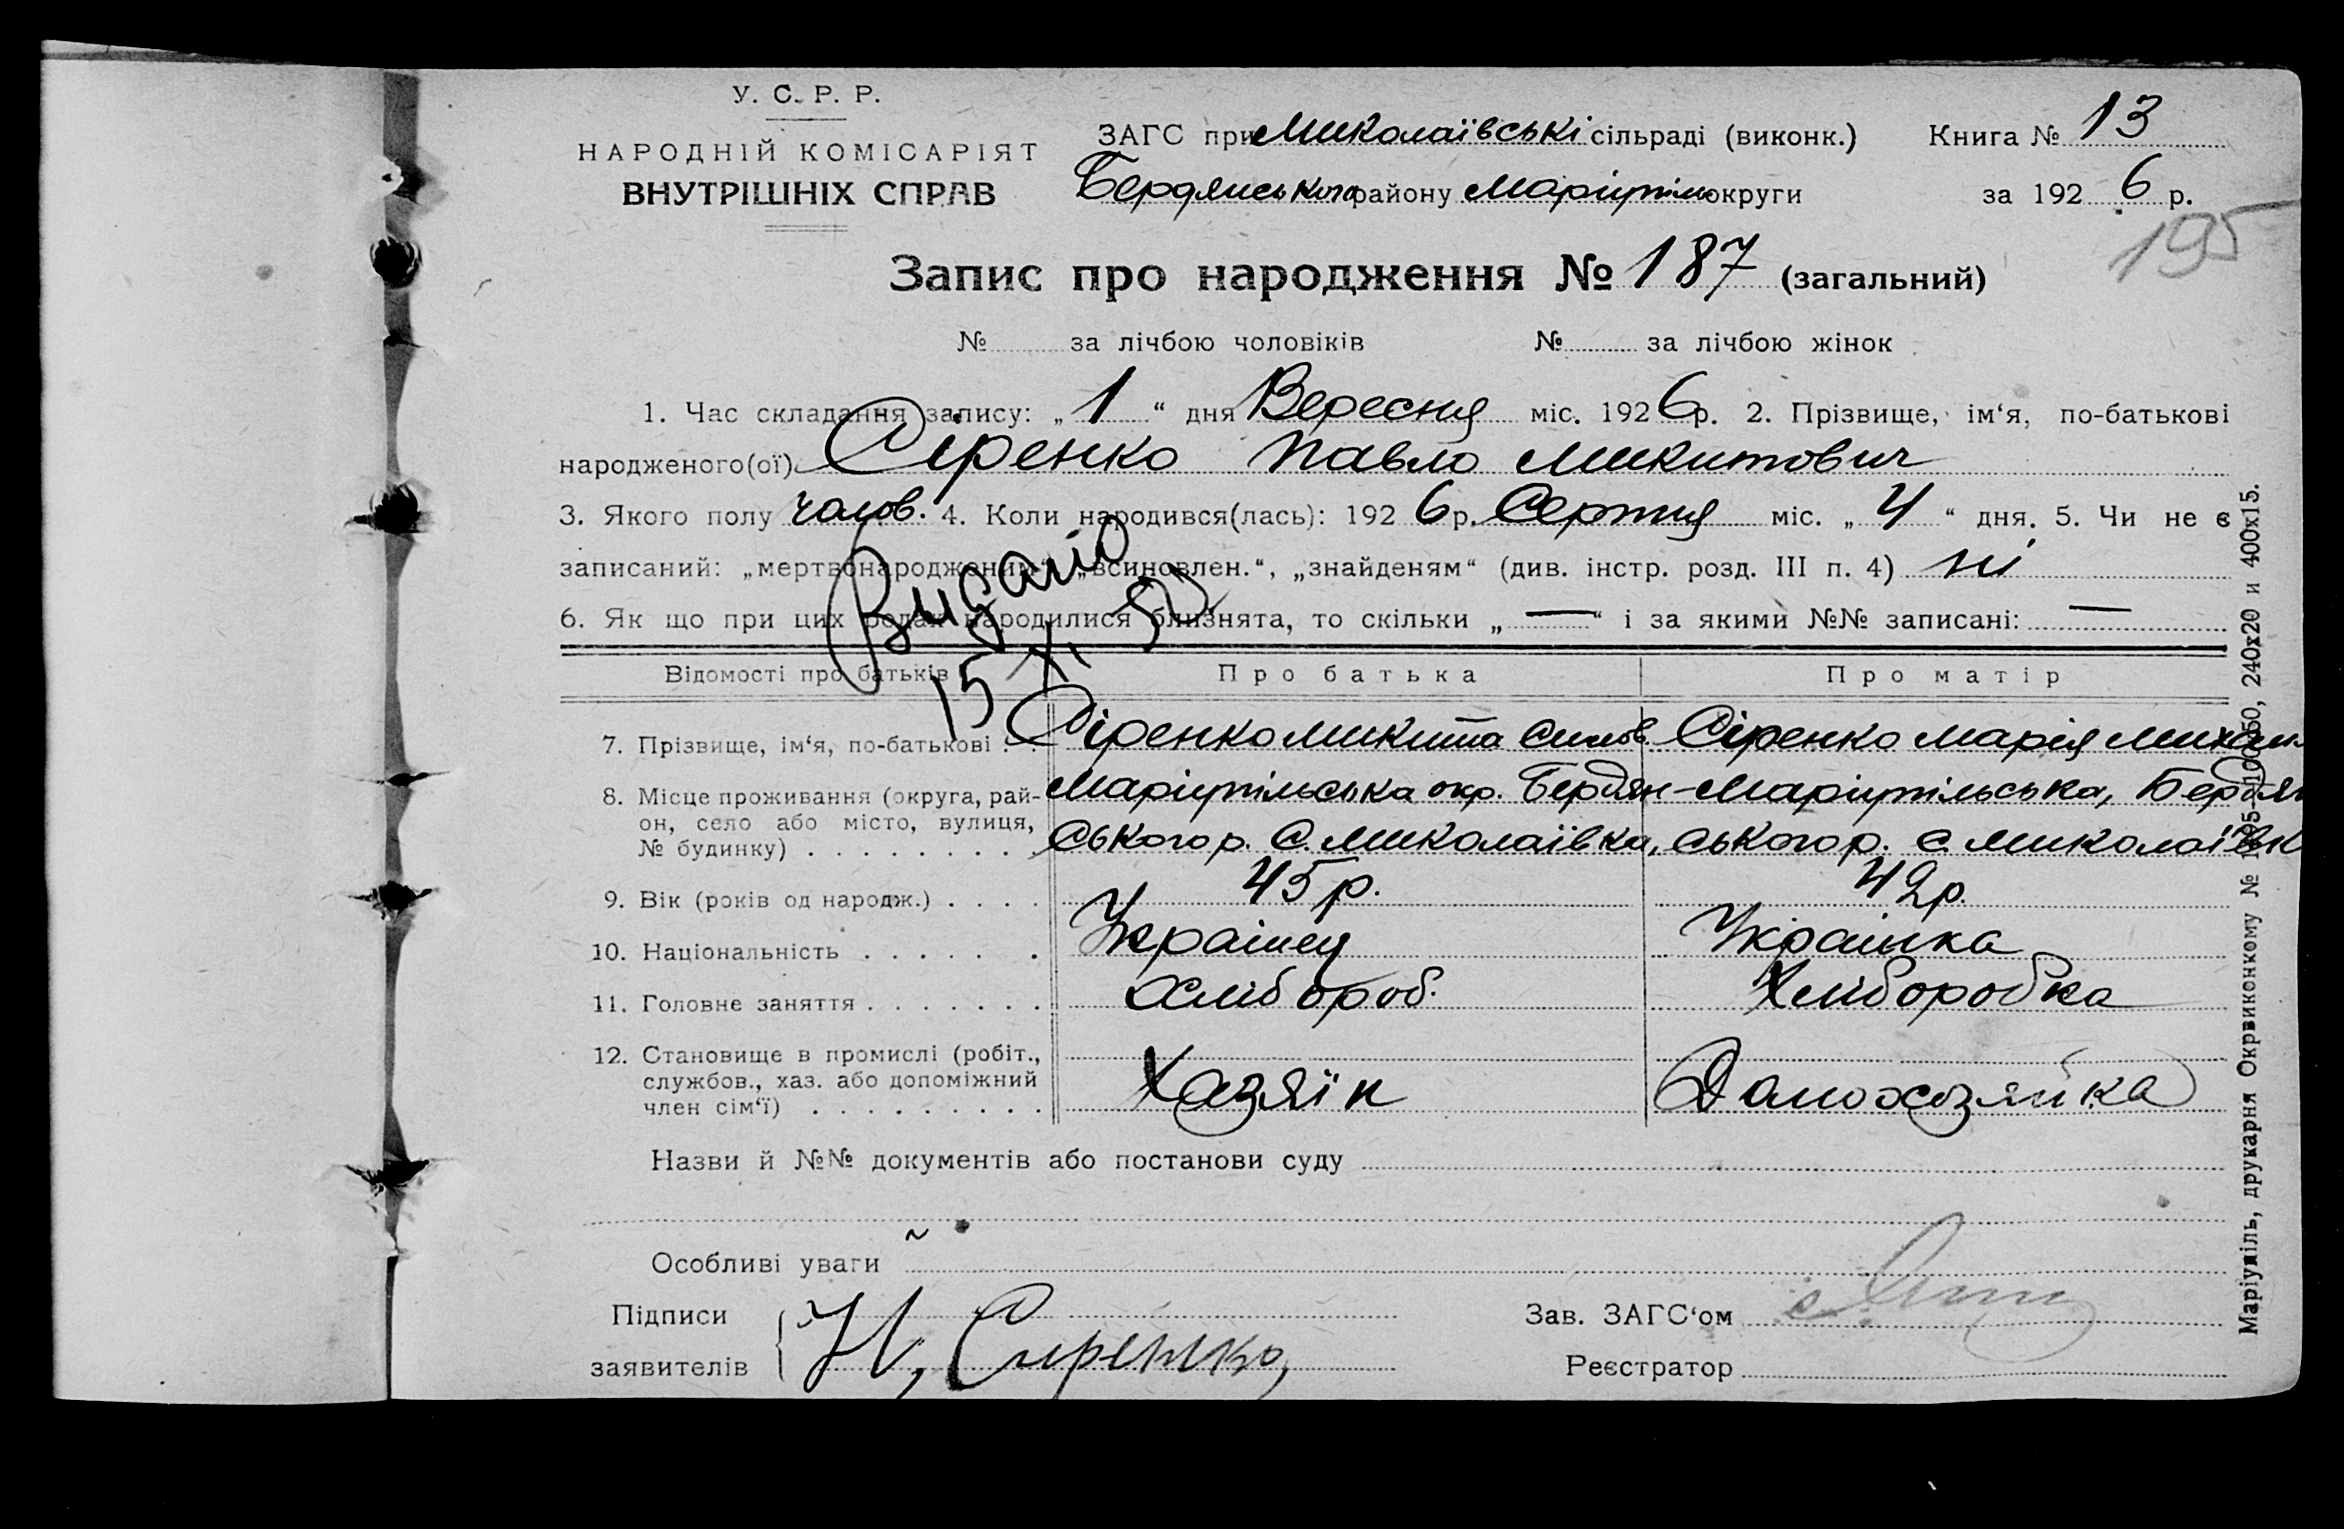 У. С. Р. Р.
НАРОДНІЙ КОМІСАРІЯТ
ВНУТРІШНІХ СПРАВ
ЗАГС при Миколаївські сільраді (виконк.) Книга № 13
Бердянського району Маріупільс округи за 192 6 р.
195
Запис про народження № 187 (загальний)
№ за лічбою чоловіків № за лічбою жінок
1. Час складання запису: „ 1 “ дня Вересня міс. 192 6 р. 2. Прізвище, ім‘я, по-батькові
народженого(ої) Сіренко Павло Микитович
3. Якого полу чолов. 4. Коли народився(лась): 192 6 р. Серпня міс. „ 4 “ дня. 5. Чи не є
записаний: „мертвонародженим“, „всиновлен.“, „знайденям“ (див. інстр. розд. III п. 4) ні
6. Як що при цих родах народилися близнята, то скільки „ — “ і за якими №№ записані: —
Видано
15 XI 50
Відомості про батьків Про батька Про матір
7. Прізвище, ім‘я, по-батькові . . Сіренко Микита Силов. Сіренко Марія Михайл
8. Місце проживання (округа, рай- Маріупільська окр. Бердян- Маріупільська, Бердян
он, село або місто, вулиця, ського р. С. Миколаївка, ського р. с. Миколаївк
№ будинку) . . . . . . . . .
9. Вік (років од народж.) . . . . 45 р. 42 р.
10. Національність . . . . . . Українец Українка
11. Головне заняття . . . . . . . Хлібороб. Хліборобка
12. Становище в промислі (робіт.,
службов., хаз. або допоміжний Хазяїн Домохозяйка
член сім‘ї) . . . . . . . . .
Назви й №№ документів або постанови суду
Особливі уваги ~
Підписи Зав. ЗАГС‘ом
заявителів Н, Сиренко, Реєстратор
Маріупіль, друкарня Окрвиконкому № 240х20 и 400х15.